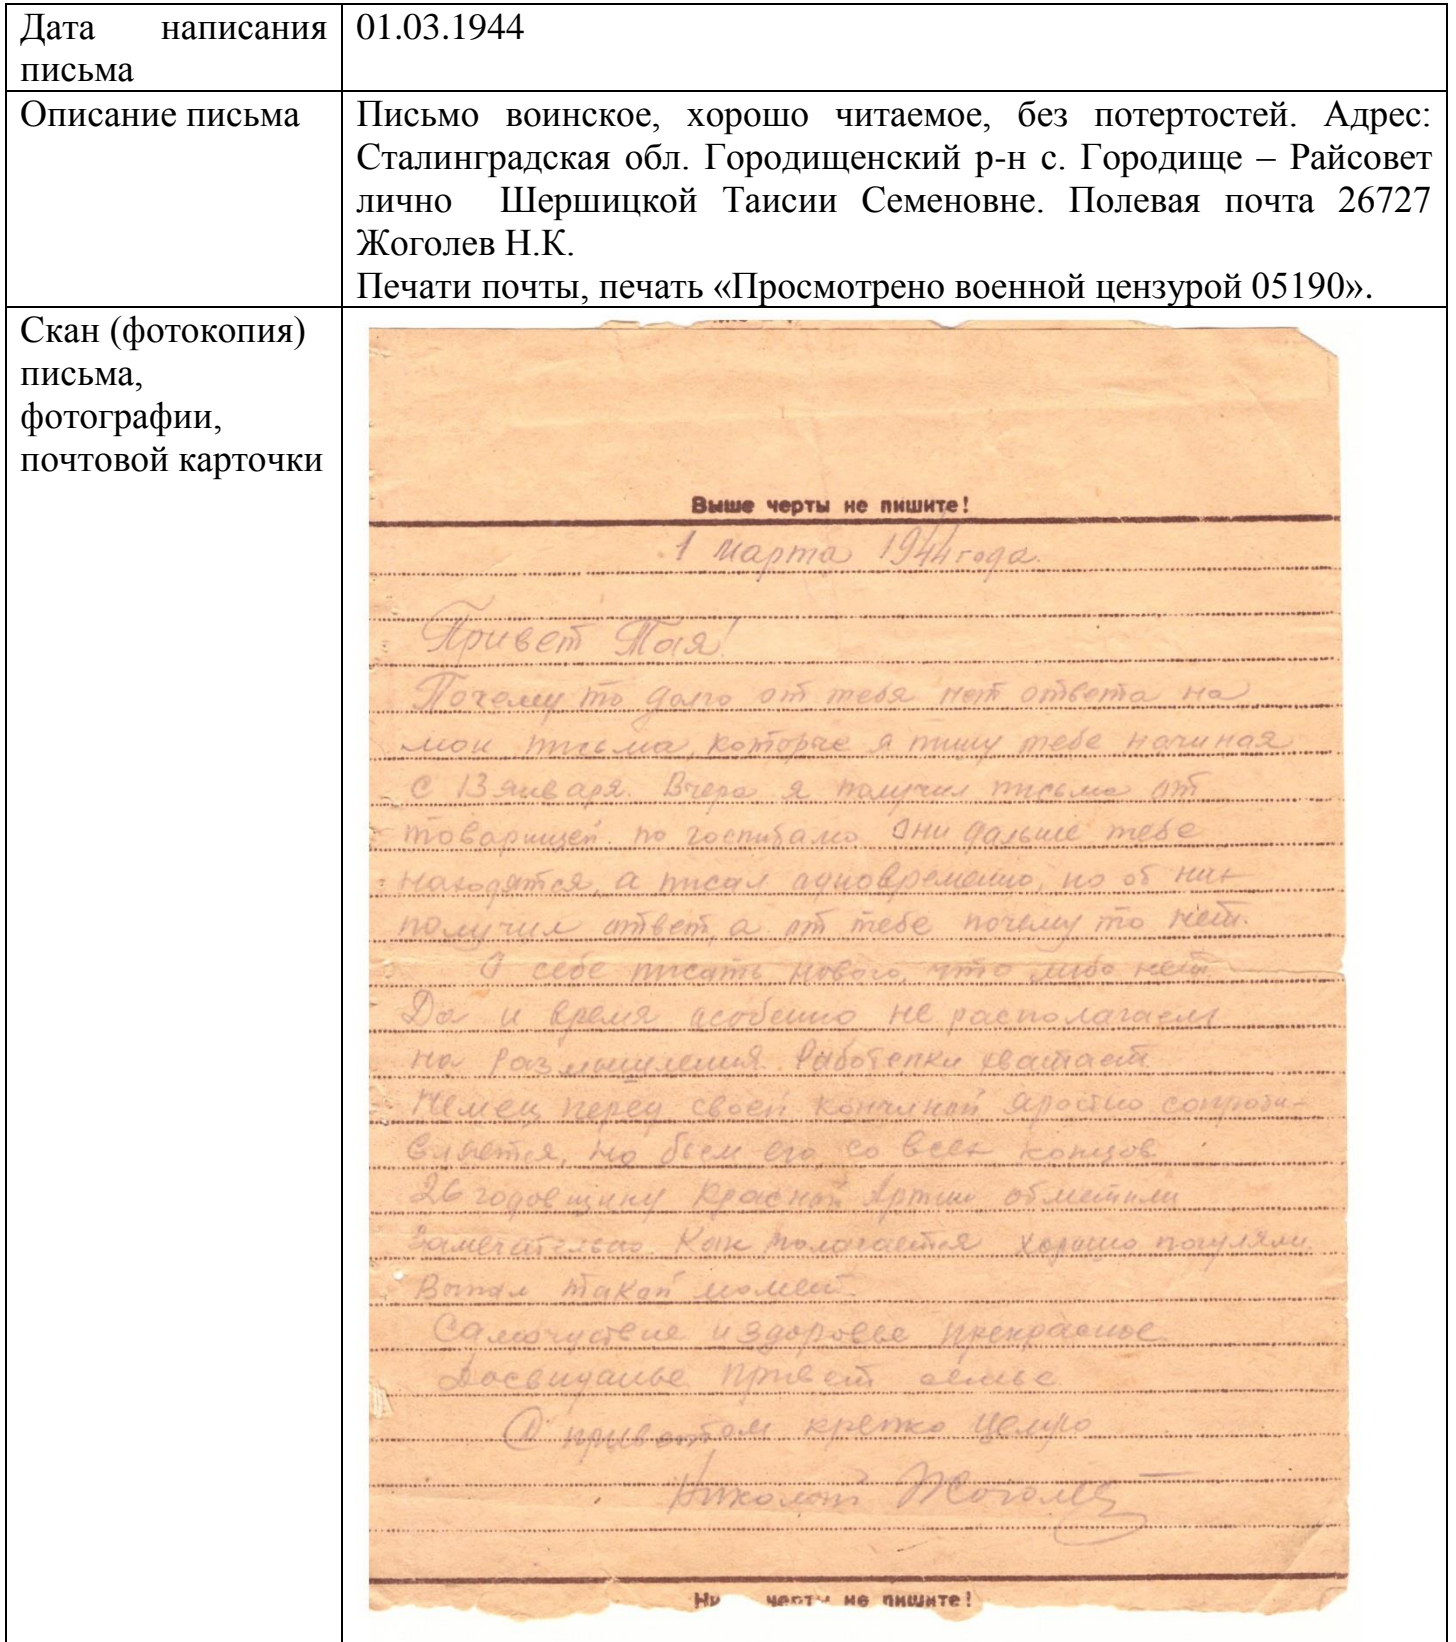 Дата написания
письма
01.03.1944
Описание письма
Письмо воинское, хорошо читаемое, без потертостей. Адрес:
Сталинградская обл. Городищенский р-н с. Городище – Райсовет
лично Шершицкой Таисии Семеновне. Полевая почта 26727
Жоголев Н.К.
Печати почты, печать «Просмотрено военной цензурой 05190».
Скан (фотокопия)
письма,
фотографии,
почтовой карточки
Выше черты не пишите!
1 марта 1944 года.
Привет Тая!
Почему то долго от тебя нет ответа на
мои письма, которые я пишу тебе начиная
с 13 января. Вчера я получил письмо от
товарищей по госпиталю они дальше тебе
находятся, а писал одновременно, но от них
получил ответ, а от тебе почему то нет.
О себе писать нового, что либо нет
Да и время особенно не располагаем
на размышления. Работенки хватает.
Немец перед своей кончиной яростно сопроти-
вляется, но бьем его со всех концов
26 годовщину Красной Армии отметили
замечательно. Как полагается хорошо погуляли.
Выпал такой момент.
Самочуствие и здоровье прекрасное
Досвиданье привет семье
С приветом крепко целую
Николай Жоголев
черты не пишите!